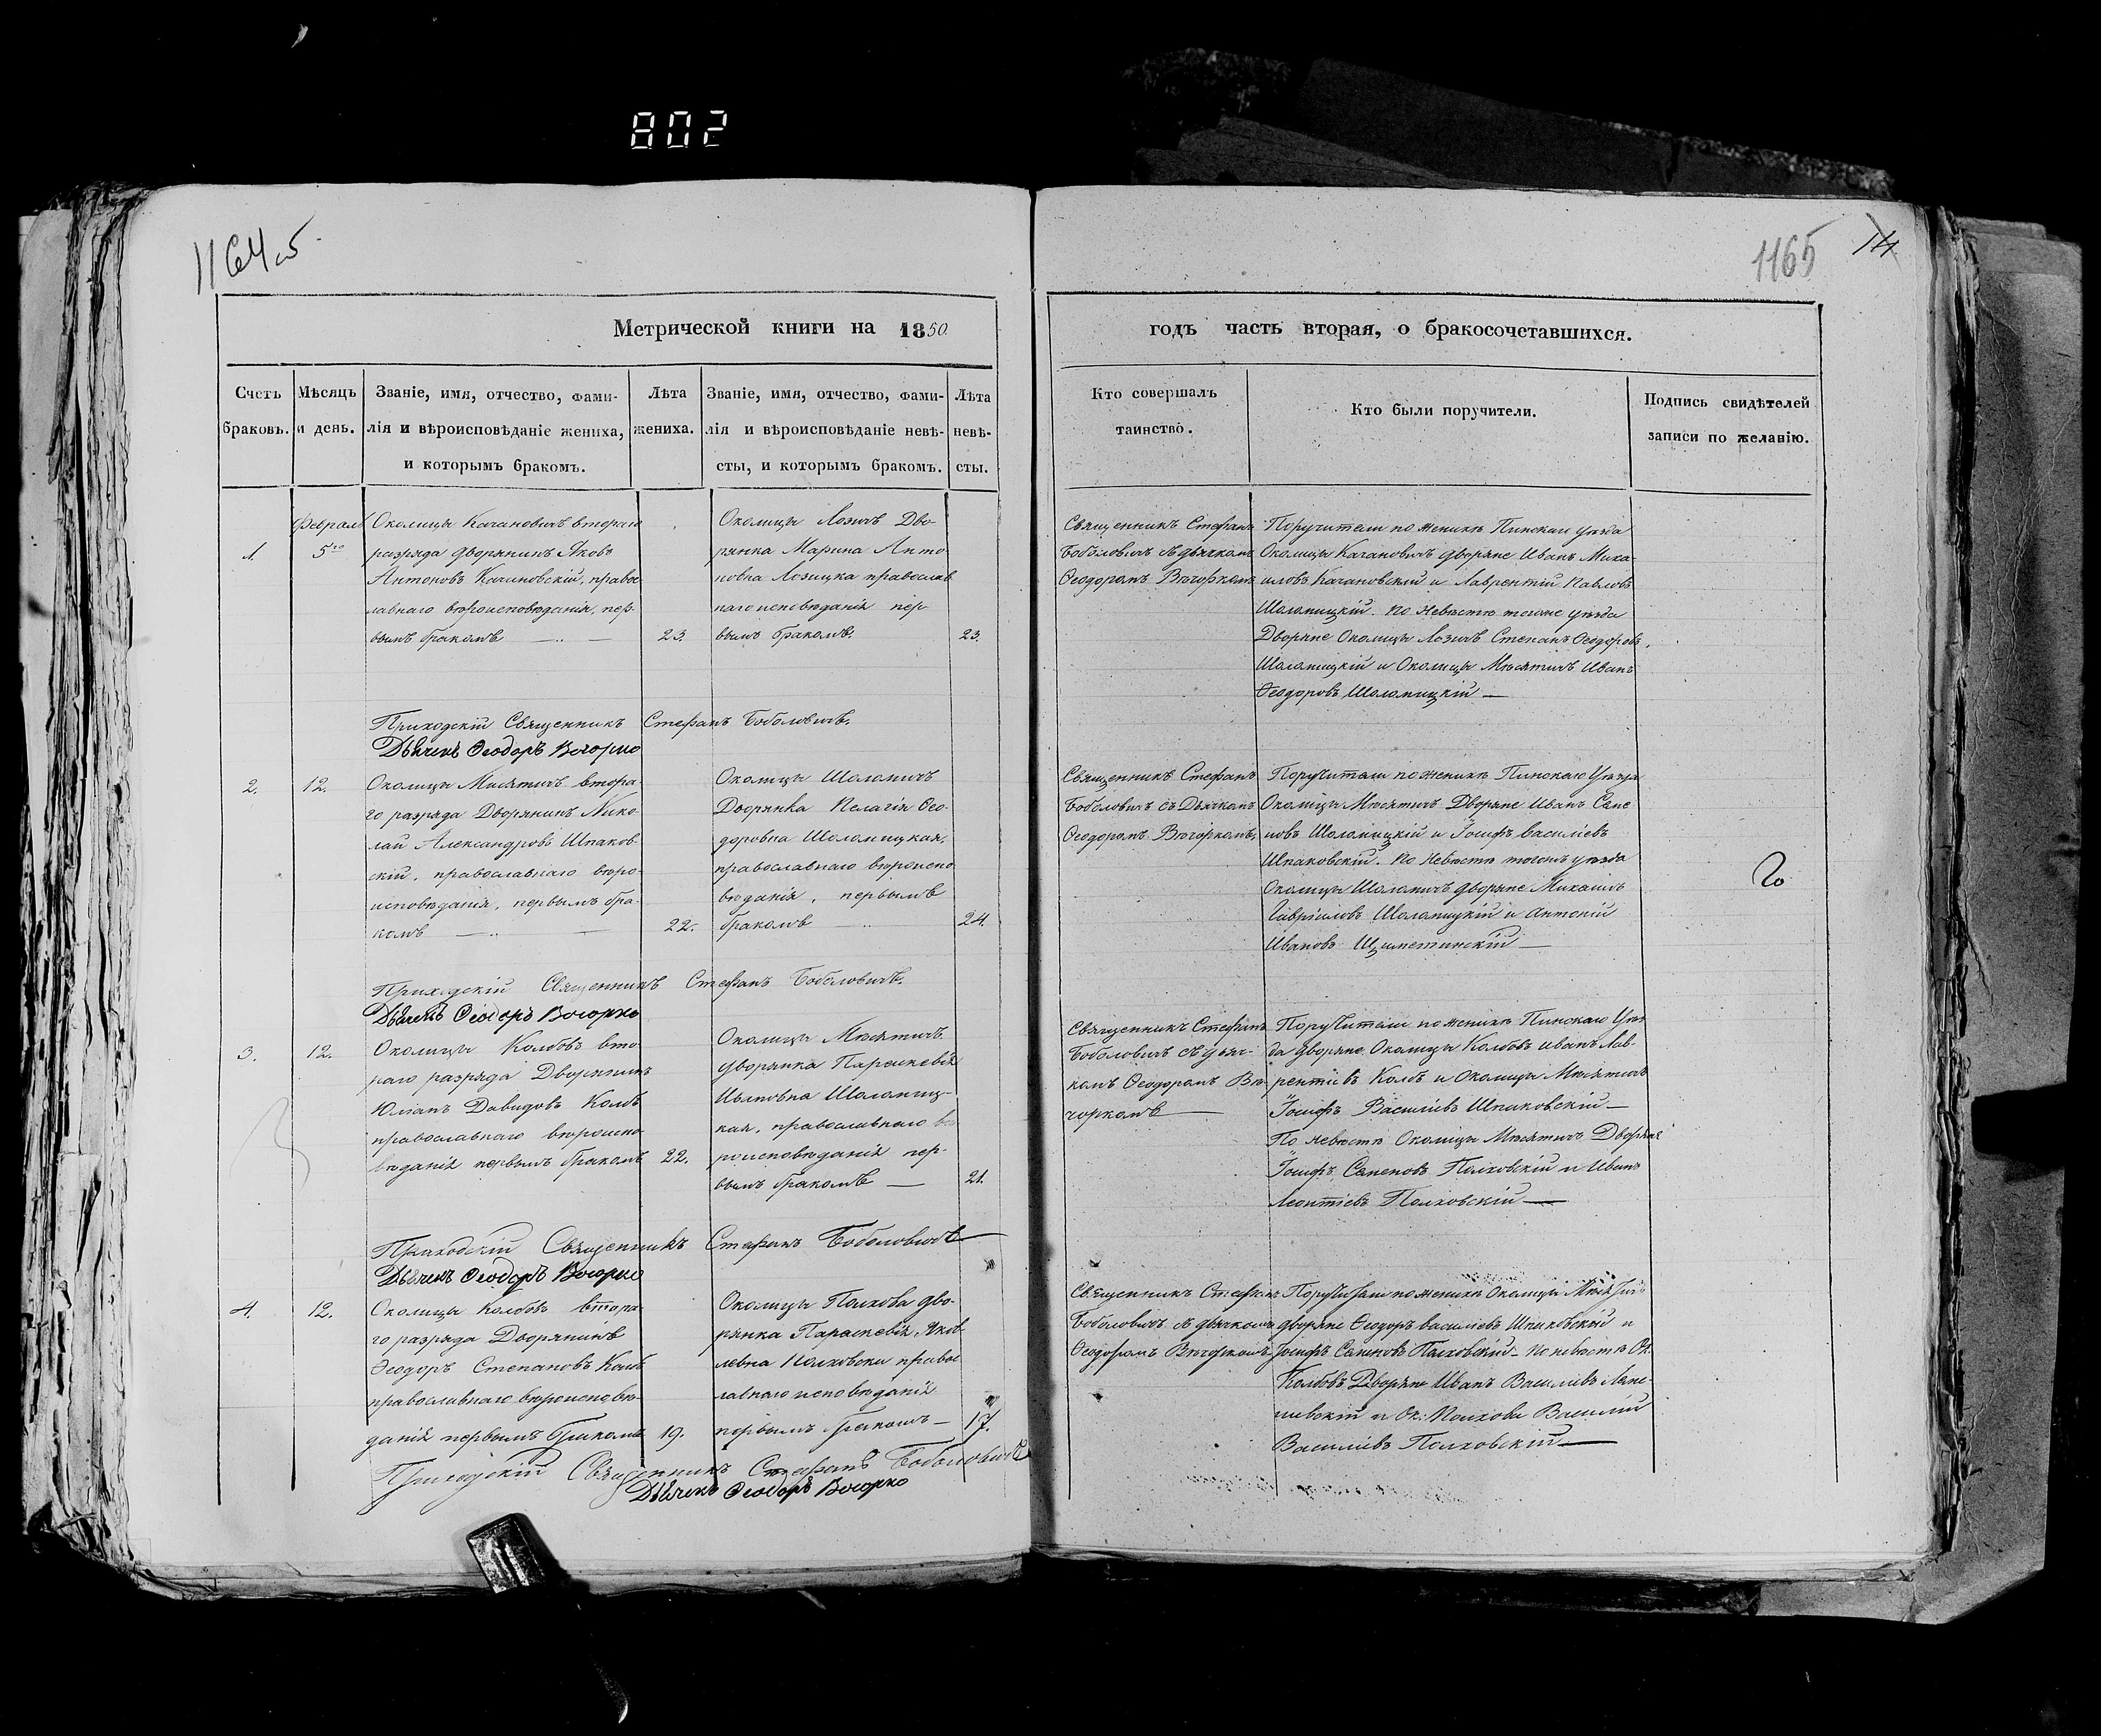 802
1164 об
1165
14
Метрической книги на 1850
годъ часть вторая, о бракосочетавшихся.
Счетъ браковъ.
Мѣсяцъ и день.
Званіе, имя, отчество, фами-
лія и вѣроисповѣданіе жениха,
и которымъ бракомъ.
Лѣта жениха.
Званіе, имя, отчество, фами-
лія и вѣроисповѣданіе невѣ-
сты, и которымъ бракомъ.
Лѣта невѣ-
сты.
Кто совершалъ
таинство.
Кто были поручители.
Подпись свидѣтелей
записи по желанію.
1.
Феврал
5го
Околицы Качановичъ втораго
разряда дворянинъ Яковъ
Антоновъ Качановскій, правос
лавнаго вѣроисповѣданія, пер-
вымъ бракомъ
23.
Околицы Лозичъ Дво-
рянка Марина Анто
новна Лозицка православ
наго исповѣданія пер-
вымъ бракомъ.
23.
Священникъ Стефанъ
Боболовичъ съ дьячкомъ
Ѳеодоромъ Вѣчоркомъ
Поручители по женихѣ Пинскаго уѣзда
Околицы Качановичъ дворяне Иванъ Миха-
иловъ Качановскій и Лаврентій Павловъ
Шоломицкій. По невѣстѣ тогоже уѣзда
Дворяне Околицы Лозичъ Степанъ Ѳеодоровъ
Шоломицкій и Околицы Мѣсятичъ Иванъ
Ѳеодоровъ Шоломицкій
Приходскій Священникъ Стефанъ Боболовичъ.
Дьячекъ Ѳеодоръ Вѣчорко
2.
12.
Околицы Мисятичъ втора-
го разряда Дворянинъ Нико-
лай Александровъ Шпаков-
скій, православнаго вѣро-
исповѣданія, первымъ бра-
комъ
22.
Околицы Шоломичъ
Дворянка Пелагія Ѳео-
доровна Шоломицкая,
православнаго вѣроиспо
вѣданія, первымъ
бракомъ
24.
Священникъ Стефанъ
Боболовичъ съ Дьячкомъ
Ѳеодоромъ Вѣчоркомъ.
Поручители по женихѣ Пинскаго Уѣзда
Околицы Мѣсятичъ Дворяне Иванъ
Шоломицкій и Іосифъ Василіевъ
Шпаковскій. По невѣстѣ тогожъ уѣзда
Околицы Шоломичъ дворяне Михаилъ
Гавріиловъ Шоломицкій и Антоній
Ивановъ
Приходскій Священникъ Стефанъ Боболовичъ.
Дьячекъ Ѳеодоръ Вѣчорко
3.
12.
Околицы Колбовъ вто-
раго разряда Дворянинъ
Юліанъ Давидовъ Колбъ
православнаго вѣроиспо-
вѣданія первымъ бракомъ
22.
Околицы Мѣсятичъ
дворянка Параскевія
Шоломиц-
кая, православнаго вѣ
роисповѣданія пер-
вымъ бракомъ
21.
Священникъ Стефанъ
Боболовичъ съ дьяч-
комъ Ѳеодоромъ Вѣ-
чоркомъ
Поручители по женихѣ Пинскаго Уѣз
да дворяне Околицы Колбовъ Иванъ Лав-
рентіевъ Колбъ и Околицы Мѣсятичъ
Іосифъ Василіевъ Шпаковскій
По невѣстѣ Околицы Мѣсятичъ Дворяне
Іосифъ Полховскій и Иванъ
Леонтіевъ Полховскій
Приходскій Священникъ Стефанъ Боболовичъ
Дьячекъ Ѳеодоръ Вѣчорко
4.
12.
Околицы Колбовъ втора-
го разряда Дворянинъ
Ѳеодоръ Степановъ Колбъ
православнаго вѣроисповѣ-
данія первымъ бракомъ
19.
Околицы Полхова дво-
рянка Параскевія Яков
левна Полховска правос
лавнаго исповѣданія
первымъ бракомъ
17.
Священникъ Стефанъ
Боболовичъ съ дьячкомъ
Ѳеодоромъ Вѣчоркомъ
Поручители по женихѣ Околицы
дворяне Ѳеодоръ Василіевъ Шпаковскій и
Іосифъ Полховскій. По невѣстѣ Ок.
Колбовъ Дворяне Иванъ Василіевъ
и Ок: Полхова Василій
Василіевъ Полховскій
Приходскій Священникъ Стефанъ Боболовичъ
Дьячекъ Ѳеодоръ Вѣчорко